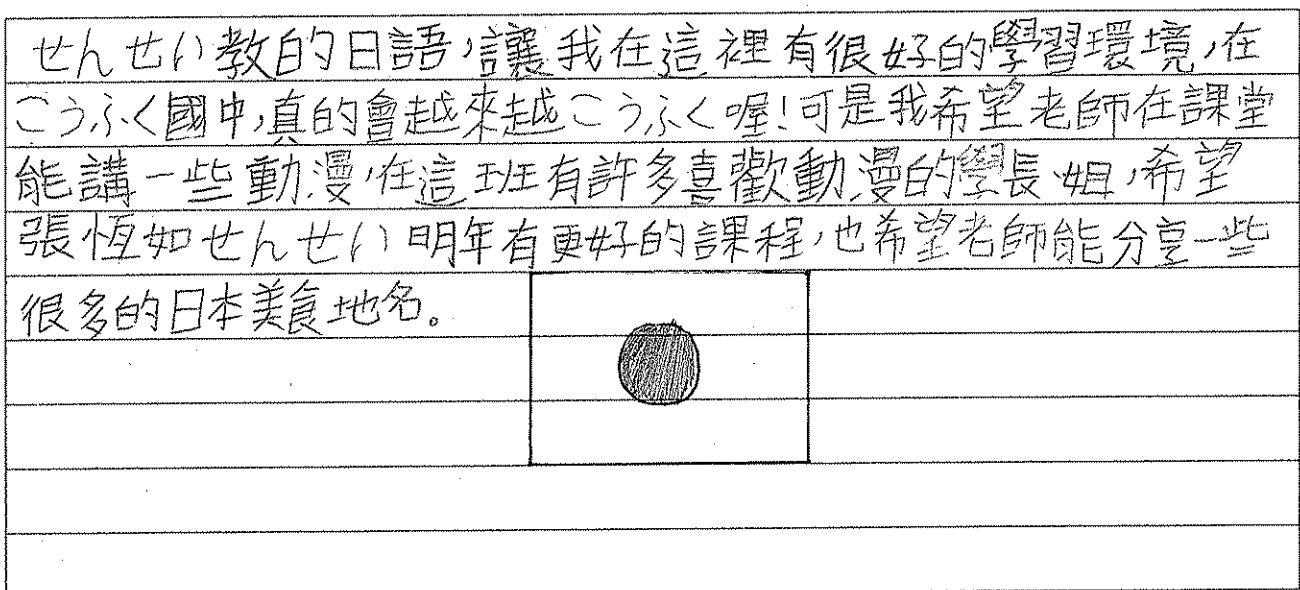 せんせい教的日語，讓我在這裡有很好的學習環境，在
こうふく國中，真的會越來越こうふく喔！可是我希望老師在課堂
能講一些動漫，在這班有許多喜歡動漫的學長姐，希望
張恆如せんせい明年有更好的課程，也希望老師能分享一些
很多的日本美食地名。